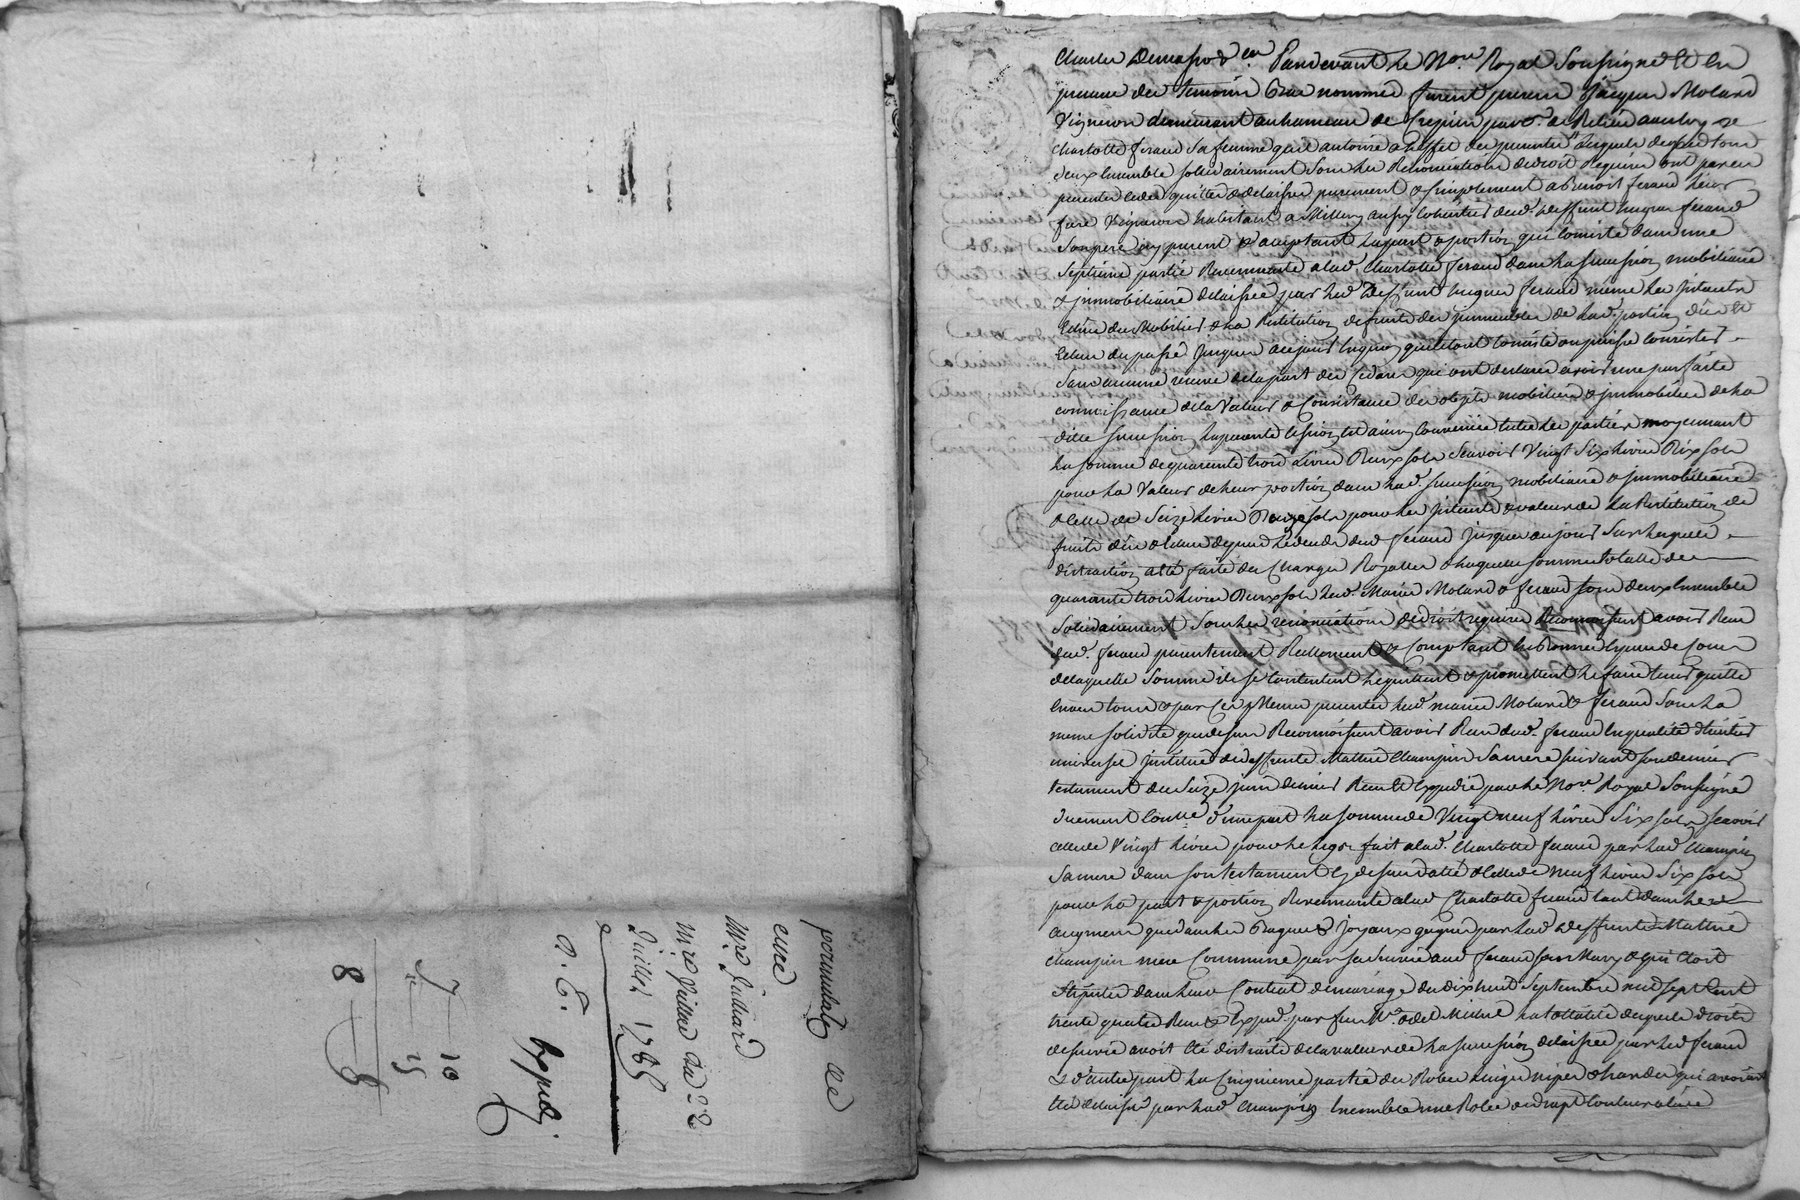 permutat de
cure
mre Julliard
mre du 22
Juillet 1785
D. C.
Expedi
7 10
15
8 8
Pardevant Le Nore. Royal Soussigné Et En
presence des temoins Bas nommés furent presens Jacques Molard
Vigneron demeurant au hameau de
Charlotte feraud Sa femme quil autorise a l'effet des presentes Lesquels de
deux Ensemble solidairement Sous les Renonciations de droit Requises ont par ces
presentes cedé quitté & delaissé purement & simplement a Benoit feraud leur
frere Vigneron habitant a Millery aussy cohéritier dud. Deffunt hugues feraud
Son pere icy present & acceptant la part & portion qui Consiste dans une
Septieme partie Revenante a lad. Charlotte feraud dans la succession mobiliaire
& immobiliaire delaissée par led. Deffunt hugues feraud même les interets
du Mobilier & la Restitution de fruits des immeubles de lad. portion dûs Et
Echus du passé jusques a ce jour En quoy que le tout Consiste ou puisse Consister
Sans aucune reserve de la part des Cedans qui ont declaré avoir une parfaite
connoissance de la Valeur & Consistance des objets mobiliers & immobiliers de la
ditte succession la presente Cession Est ainsy Convenüe Entre les parties moyennant
la somme de quarante trois Livres Deux sols Scavoir Vingt Six livres Dix sols
pour La Valeur de leur portion dans lad. succession mobiliaire & immobiliaire
& Celle de Seize livres Douze sols pour les interets & valeur de La Restitution de
fruits dûs & Echus depuis le deces dud. feraud jusques a ce jour Sur laquelle
distraction a été faite des Charges Royalles & laquelle somme totalle de
quarante trois livres Deux sols led. Mariés Molard & feraud tous deux Ensemble
Solidairement Sous les renonciations de droit requises Reconnoissent avoir Reçu
dud. feraud presentement Reellement & Comptant En Bonnes Especes de Cours
de laquelle Somme ils se Contentent L'en quittent & promettent L'en faire tenir quitte
Envers tous & par Ces Mêmes presentes led. mariés Molard & feraud Sous La
meme solidité que dessus Reconnoissent avoir Reçu dud. feraud En qualité d'heritier
universel institué de deffunte Mathie Champin Sa mere suivant son dernier
testament du Seize juin dernier Reçu Et Expedié par Le Nore. Royal Soussigné
duement Contrôlé d'une part La somme de Vingt neuf livres Six sols scavoir
celle de Vingt livres pour le legs fait a lad. Charlotte feraud par lad. Champin
Sa mere dans son testament cy dessus daté & Celle de neuf livres Six sols
pour La part & portion Revenante a lad. Charlotte feraud tant dans les
augment que dans les Bagues & joyaux gagnés par lad. deffunte Mathie
Champin mere Commune par sa survie aud. feraud son Mary & qui Etoit
Stipulés dans leur Contrat de mariage du dix huit Septembre mil sept Cent
trente quatre Reçu & Exped. par feu Me. Odet Michel la totalité desquels droits
de survie avoit Eté distraite de la valeur de La succession delaissée par led. feraud
& d'autre part La Cinquieme partie des Robes linges nipes & hardes qui avoient
Eté delaissés par lad. Champin Ensemble une Robe de drapt Couleur